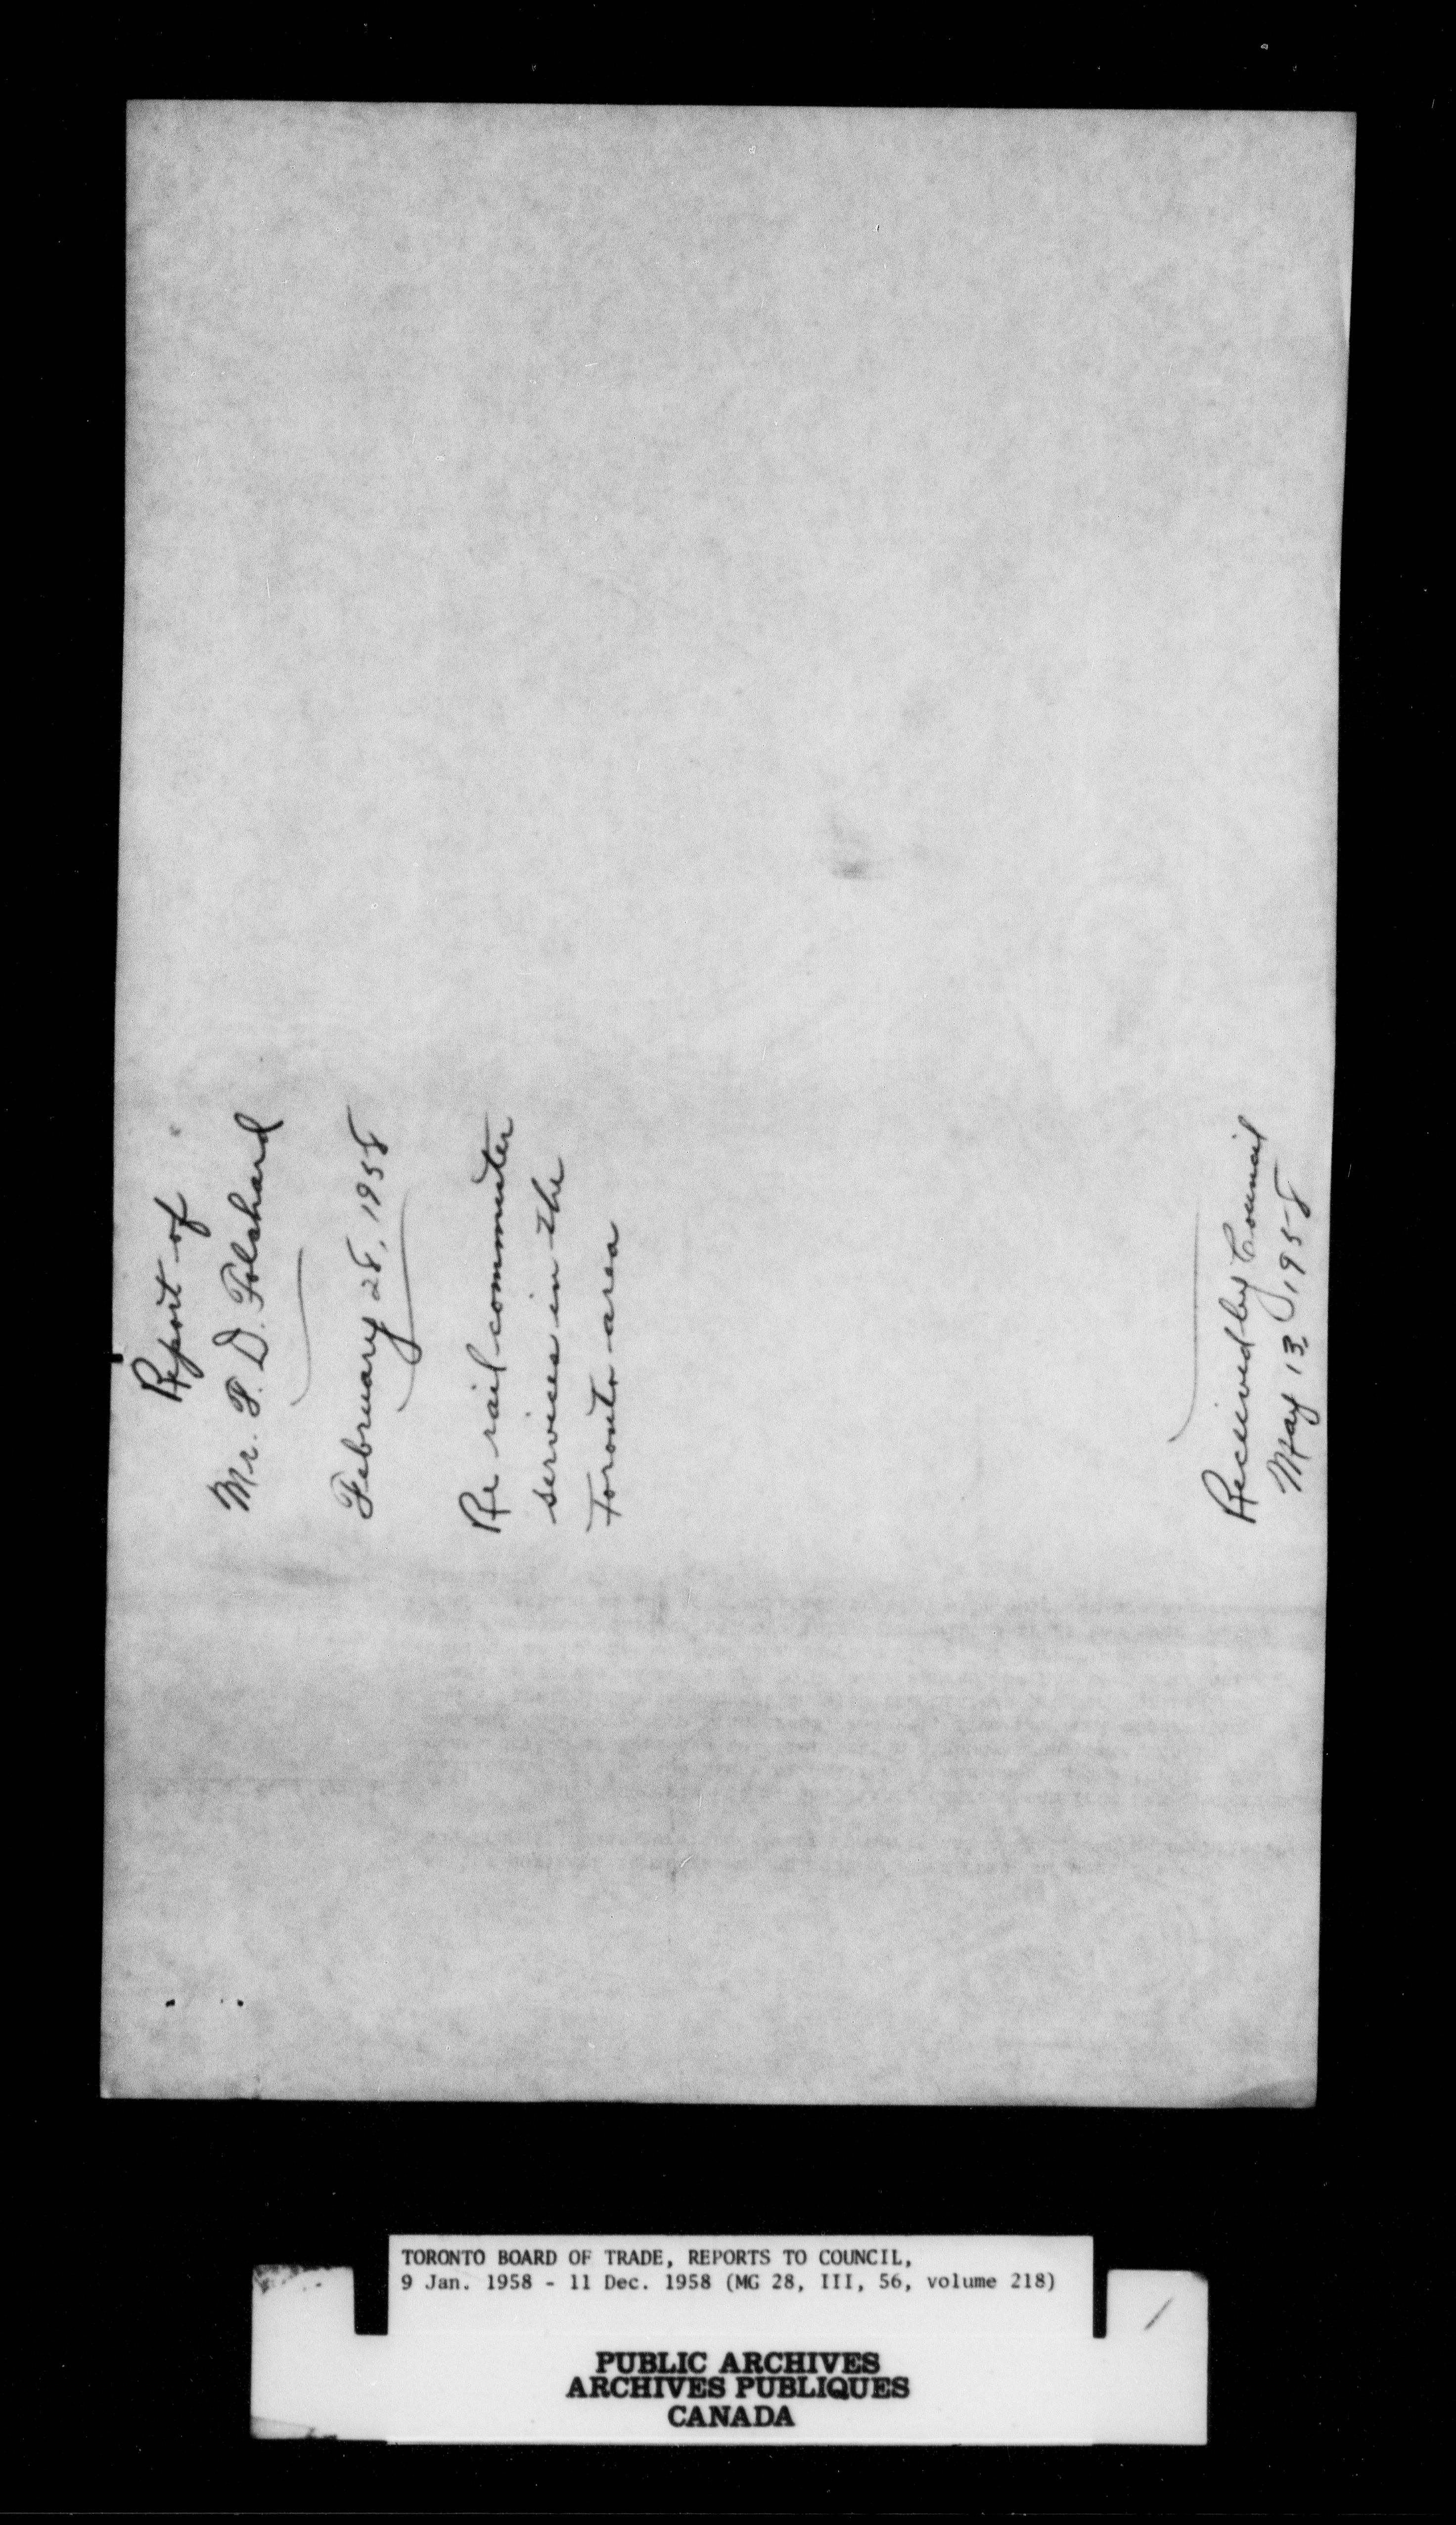 Report of
Mr. F. D. Tolchard
February 28, 1958
Re rail commuter
services in the
Toronto area
Received by Council
May 13, 1958
TORONTO BOARD OF TRADE, REPORTS TO COUNCIL,
9 Jan. 1958 - 11 Dec. 1958 (MG 28, III, 56, volume 218)
PUBLIC ARCHIVES
ARCHIVES PUBLIQUES
CANADA